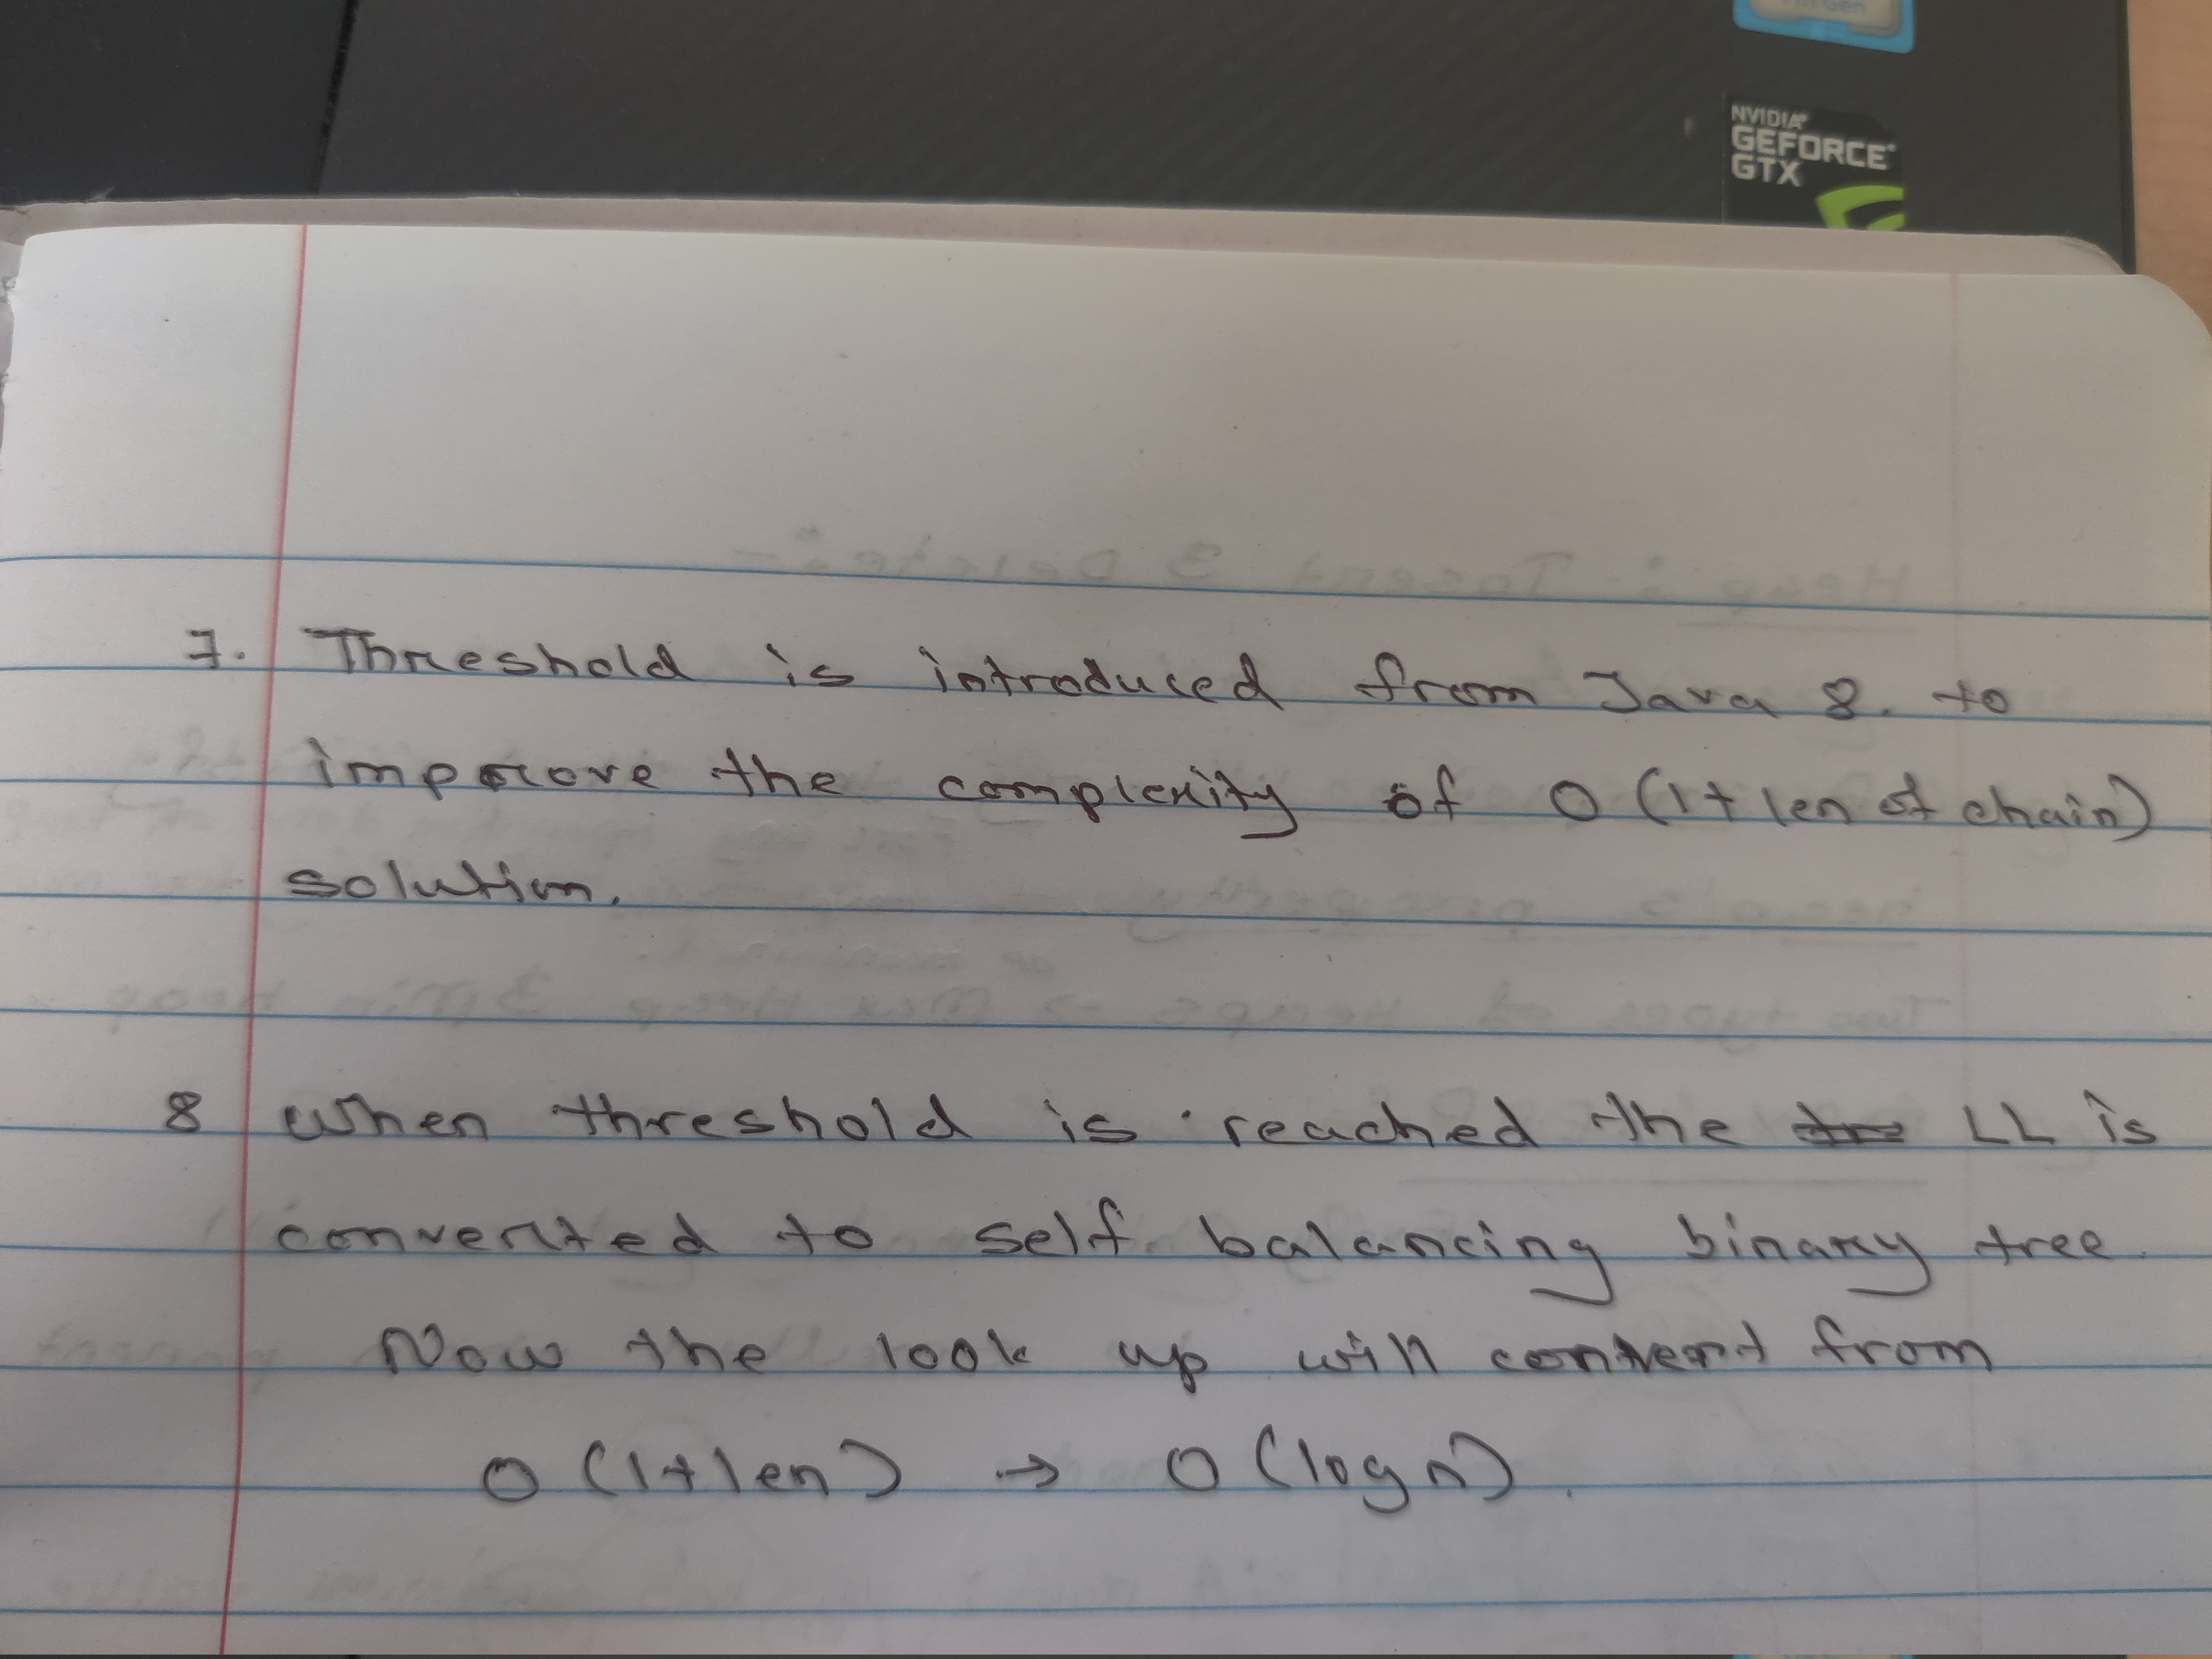 NVIDIA
GEFORCE
GTX
7. Threshold is introduced from Java 8. to
improve the complexity of O (1+ len of chain)
solution.
8 When threshold is reached the LL is
converted to self balancing binary tree.
Now the look up will convert from
O (1+len) → O (log n).